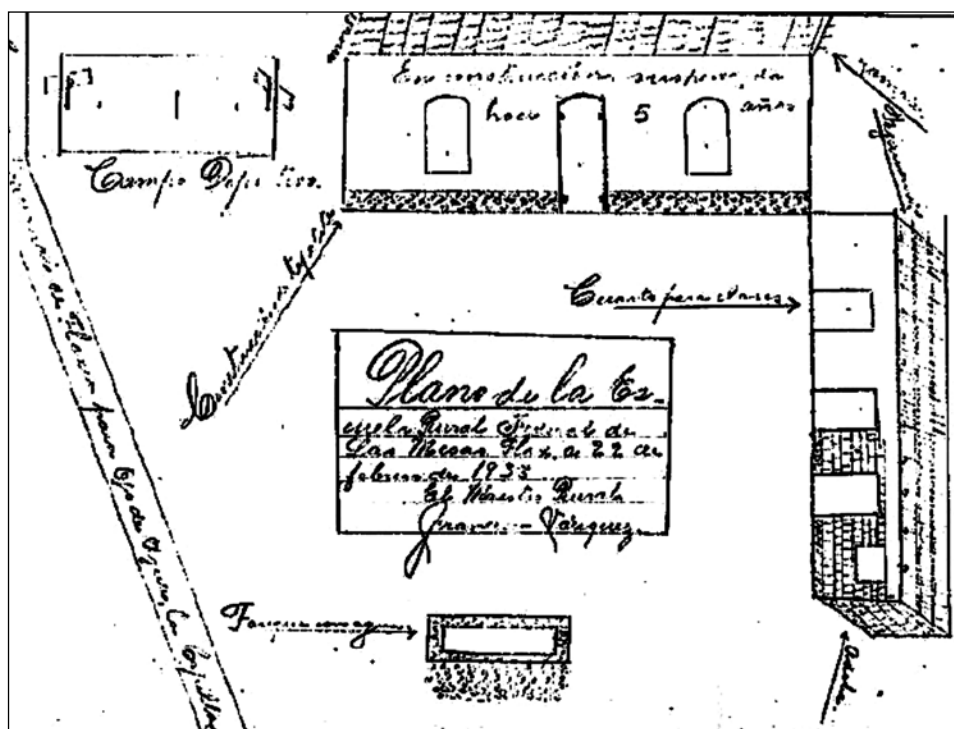 En construcción suspendida
hace 5 años
Campo Depotivo.
Construcción de tepetate
Cuarto para clases
Plano de la Es-
cuela Rural Federal de
Las Mesas Tlax. a 22 de
febrero de 1933
El Maestro Rural
Francisco Vázquez.
Tanque con agua
Camino de Tlaxco para Ojo de Agua, La Capilla